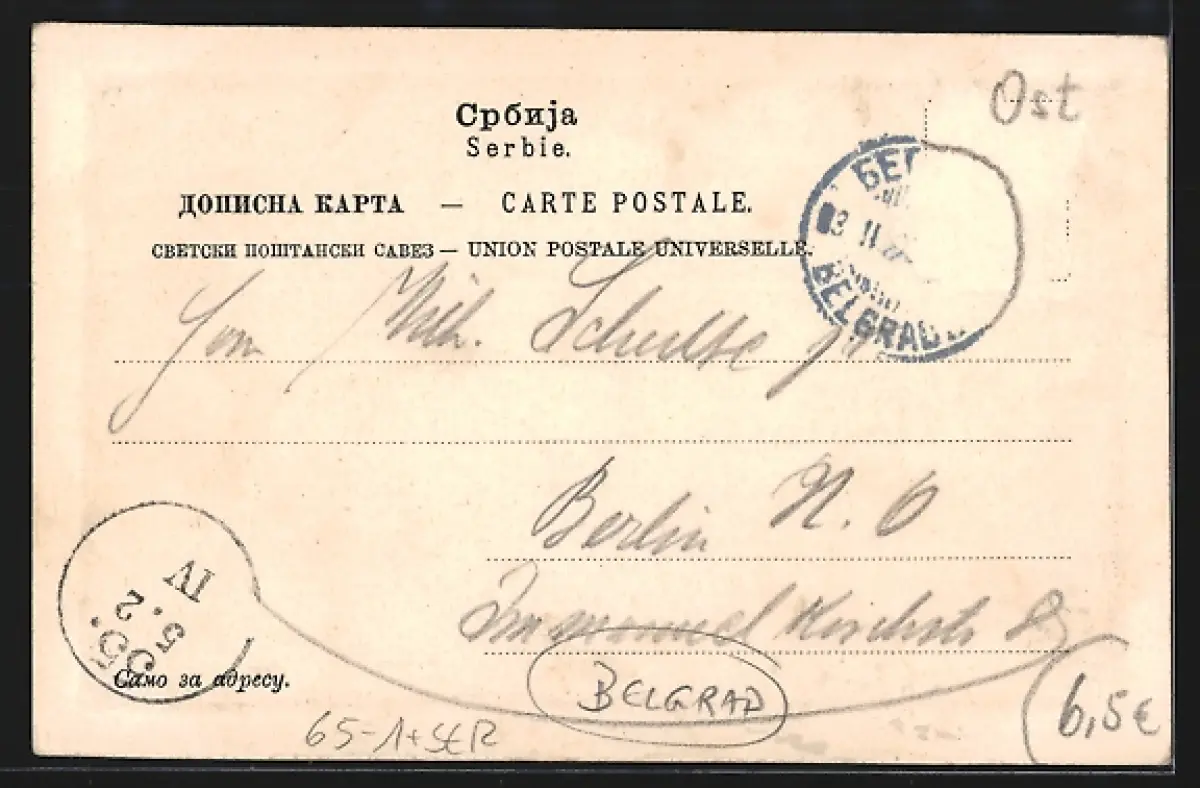 Ost
Србија
Serbie.
ДОПИСНА КАРТА — CARTE POSTALE.
СВЕТСКИ ПОШТАНСКИ САВЕЗ — UNION POSTALE UNIVERSELLE.
БЕГ
3 II
BELGRAD
Wilh. Schultse
Berlin N. O
Immanuel Kirchstr
IV
5. 2
Само за адресу.
BELGRAD
65-1+SER
6,5€